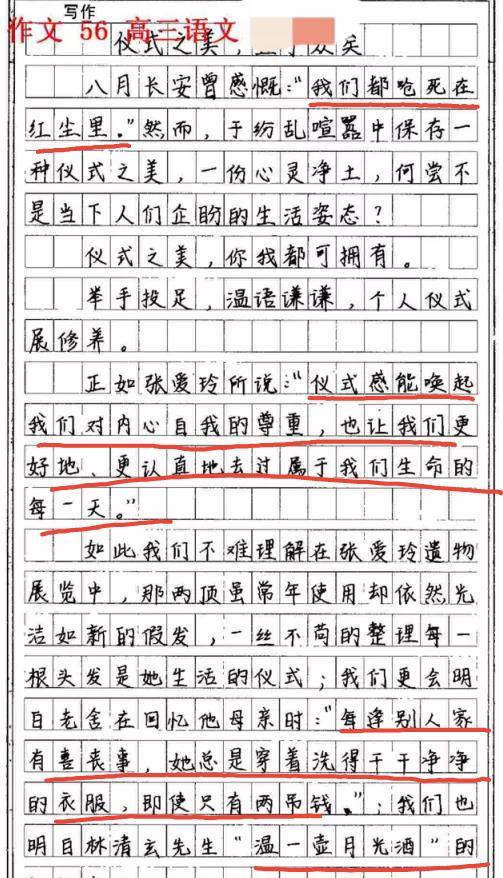 写作
作文 56 高三语文
仪式之美，
八月长安曾感慨："我们都呛死在
红尘里。"然而，于纷乱喧嚣中保存一
种仪式之美，一份心灵净土，何尝不
是当下人们企盼的生活姿态？
仪式之美，你我都可拥有。
举手投足，温语谦谦，个人仪式
展修养。
正如张爱玲所说："仪式感能唤起
我们对内心自我的尊重，也让我们更
好地、更认真地去过属于我们生命的
每一天。"
如此我们不难理解在张爱玲遗物
展览中，那两顶虽常年使用却依然光
洁如新的假发，一丝不苟的整理每一
根头发是她生活的仪式；我们更会明
白老舍在回忆他母亲时："每逢别人家
有喜丧事，她总是穿着洗得干干净净
的衣服，即使只有两吊钱。"；我们也
明白林清玄先生"温一壶月光酒"的